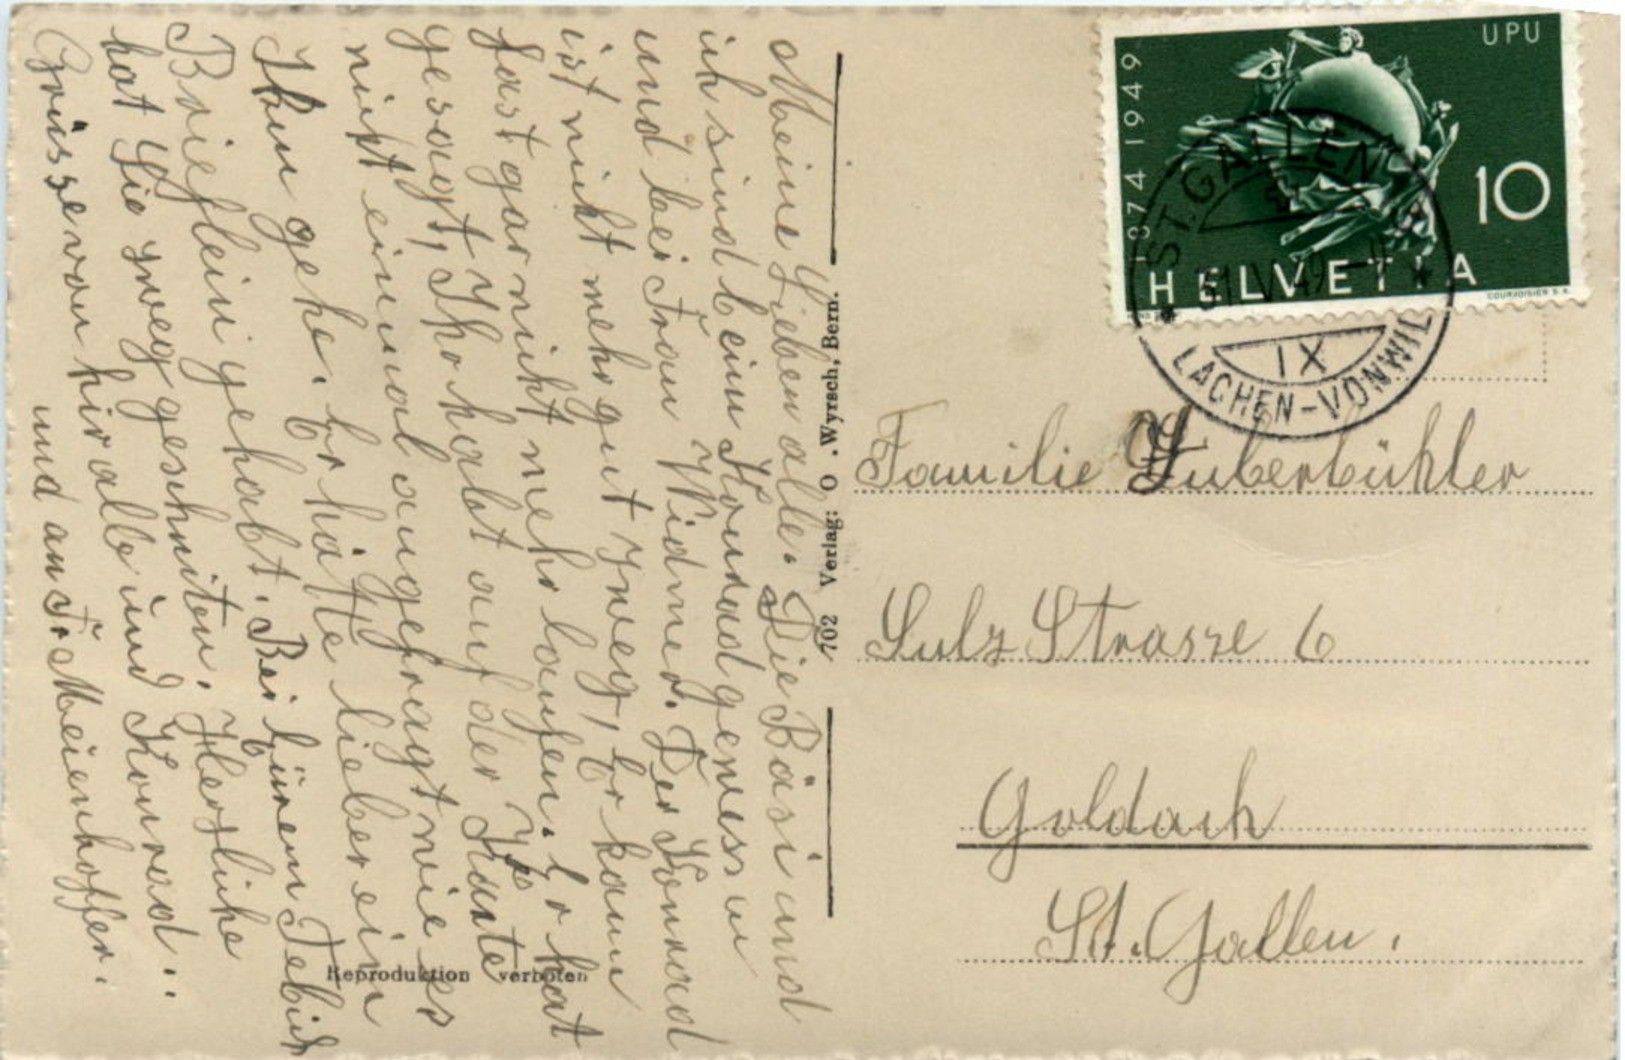 Meine Lieben alle. Die Bäsi und
ich sind beim Konrad gewess u
und bei Frau Widmer. Der Konrad
ist nicht mehr gut zweg, Er kann
fast gar nicht mehr laufen. Er hat
gesagt, Ihr habt auf der Karte
nicht einmal angefragt wie es
Ihm gehe. Er hätte lieber ein
Brieflein gehabt. Bei Eürem Tebich
hat Sie zweg geschniten. Herzliche
Grüsse von hir alle und Konrad.
und an Fr Meienhoffer.
702 Verlag: O. Wyrsch, Bern.
Reproduktion verboten
UPU
1874 1949
10
HELVETIA
COURVOISIER S.A.
ST. GALLEN
31. V. 49
IX
LACHEN-VONWIL
Familie Huberbühler
Sulz Strasse 6
Goldach
St. Gallen.